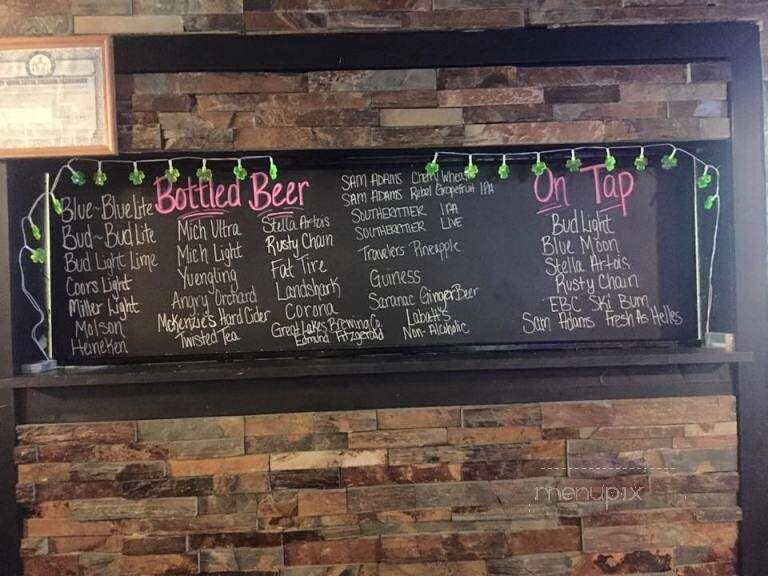 Bottled Beer
Blue~BlueLite
Bud~Bud Lite
Bud Light Lime
Coors Light
Miller Light
Molson
Heineken
Mich Ultra
Mich Light
Yuengling
Angry Orchard
McKenzie's Hard Cider
Twisted Tea
Stella Artois
Rusty Chain
Fat Tire
Landshark
Corona
Great Lakes Brewing Co.
Edmund Fitzgerald
SAM ADAMS Cherry Wheat
SAM ADAMS Rebel Grapefruit IPA
SOUTHERTIER IPA
SOUTHERTIER LIVE
Travelers Pineapple
Guiness
Saranac Ginger Beer
Labatt's
Non-Alcoholic
On Tap
Bud Light
Blue Moon
Stella Artois
Rusty Chain
EBC Ski Bum
Sam Adams Fresh As Helles
menupix